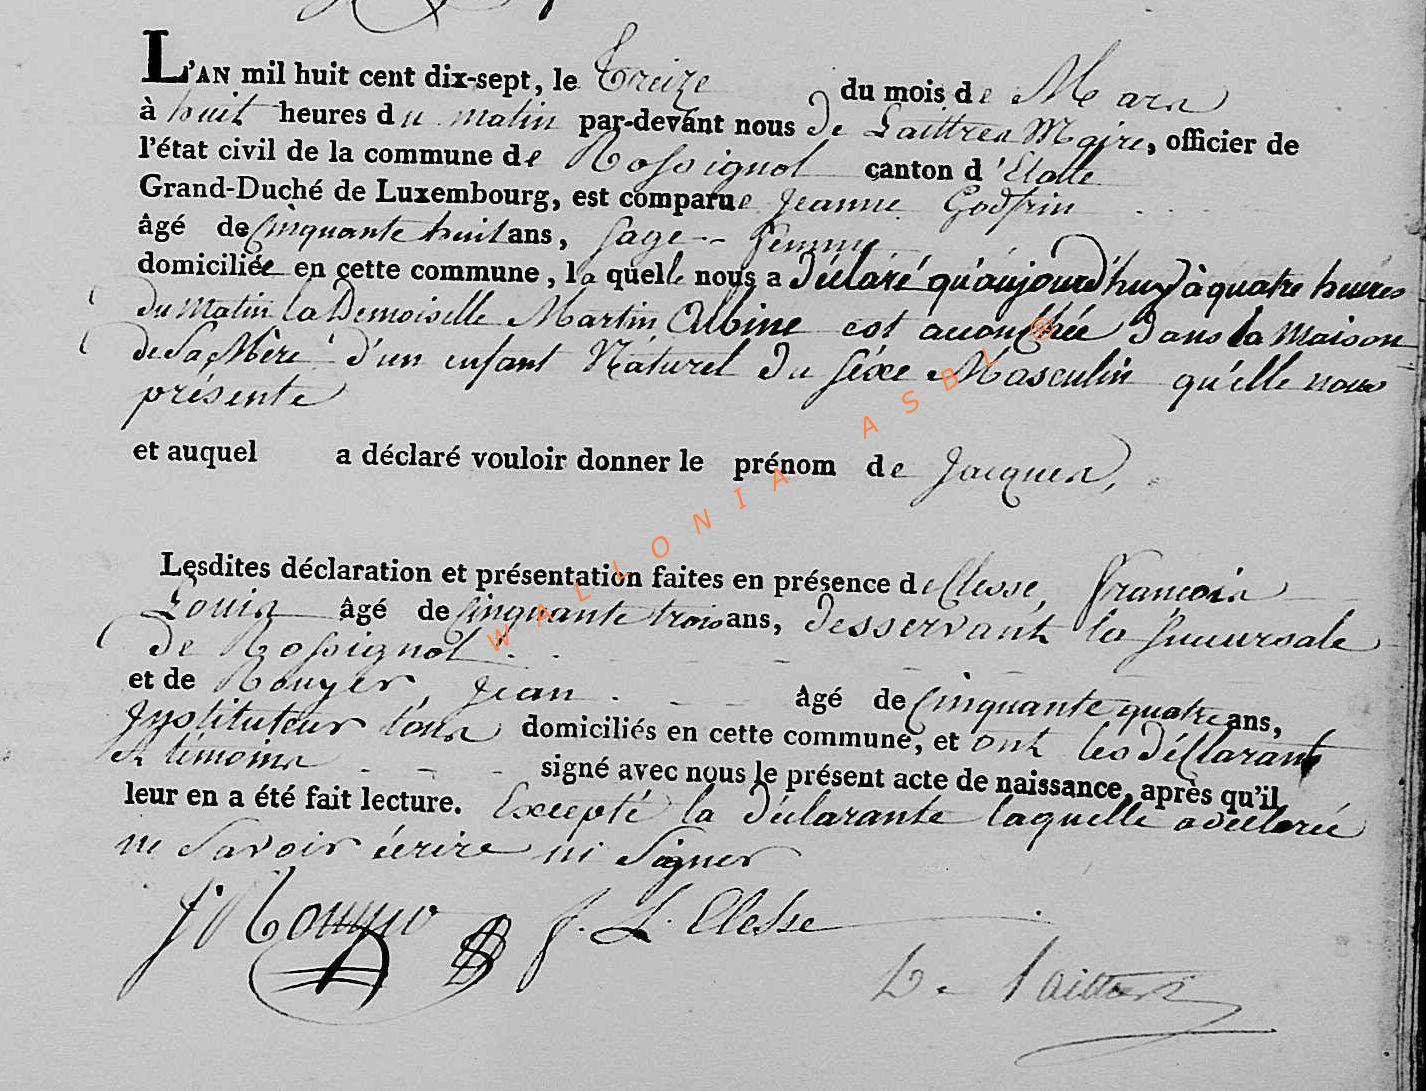 L'AN mil huit cent dix-sept, le Treize du mois de Mars
à huit heures du matin par-devant nous De Laittres Maire, officier de
l'état civil de la commune de Rossignol canton d'Etalle
Grand-Duché de Luxembourg, est comparue Jeanne Godfrin
âgé de Cinquante huit ans, Sage-femme
domiciliée en cette commune, la quelle nous a déclaré qu'aujourd'huy à quatre heures
du Matin la Demoiselle Martin Albine est accouchée dans la Maison
de Sa Mère d'un enfant Naturel du séxe Masculin qu'elle nous
présente
et auquel a déclaré vouloir donner le prénom de Jacques,
Lesdites déclaration et présentation faites en présence de Clesse, françois
Louis âgé de Cinquante trois ans, desservant la Succursale
de Rossignol
et de Rouyer, Jean âgé de Cinquante quatre ans,
Instituteur tous domiciliés en cette commune, et ont les déclarant
et témoins signé avec nous le présent acte de naissance, après qu'il
leur en a été fait lecture. Excepté la déclarante laquelle a déclaré
ne Savoir écrire ni Signer
J. Rouyer f. L. Clesse
De Laittres
WALLONIA ASBL ®